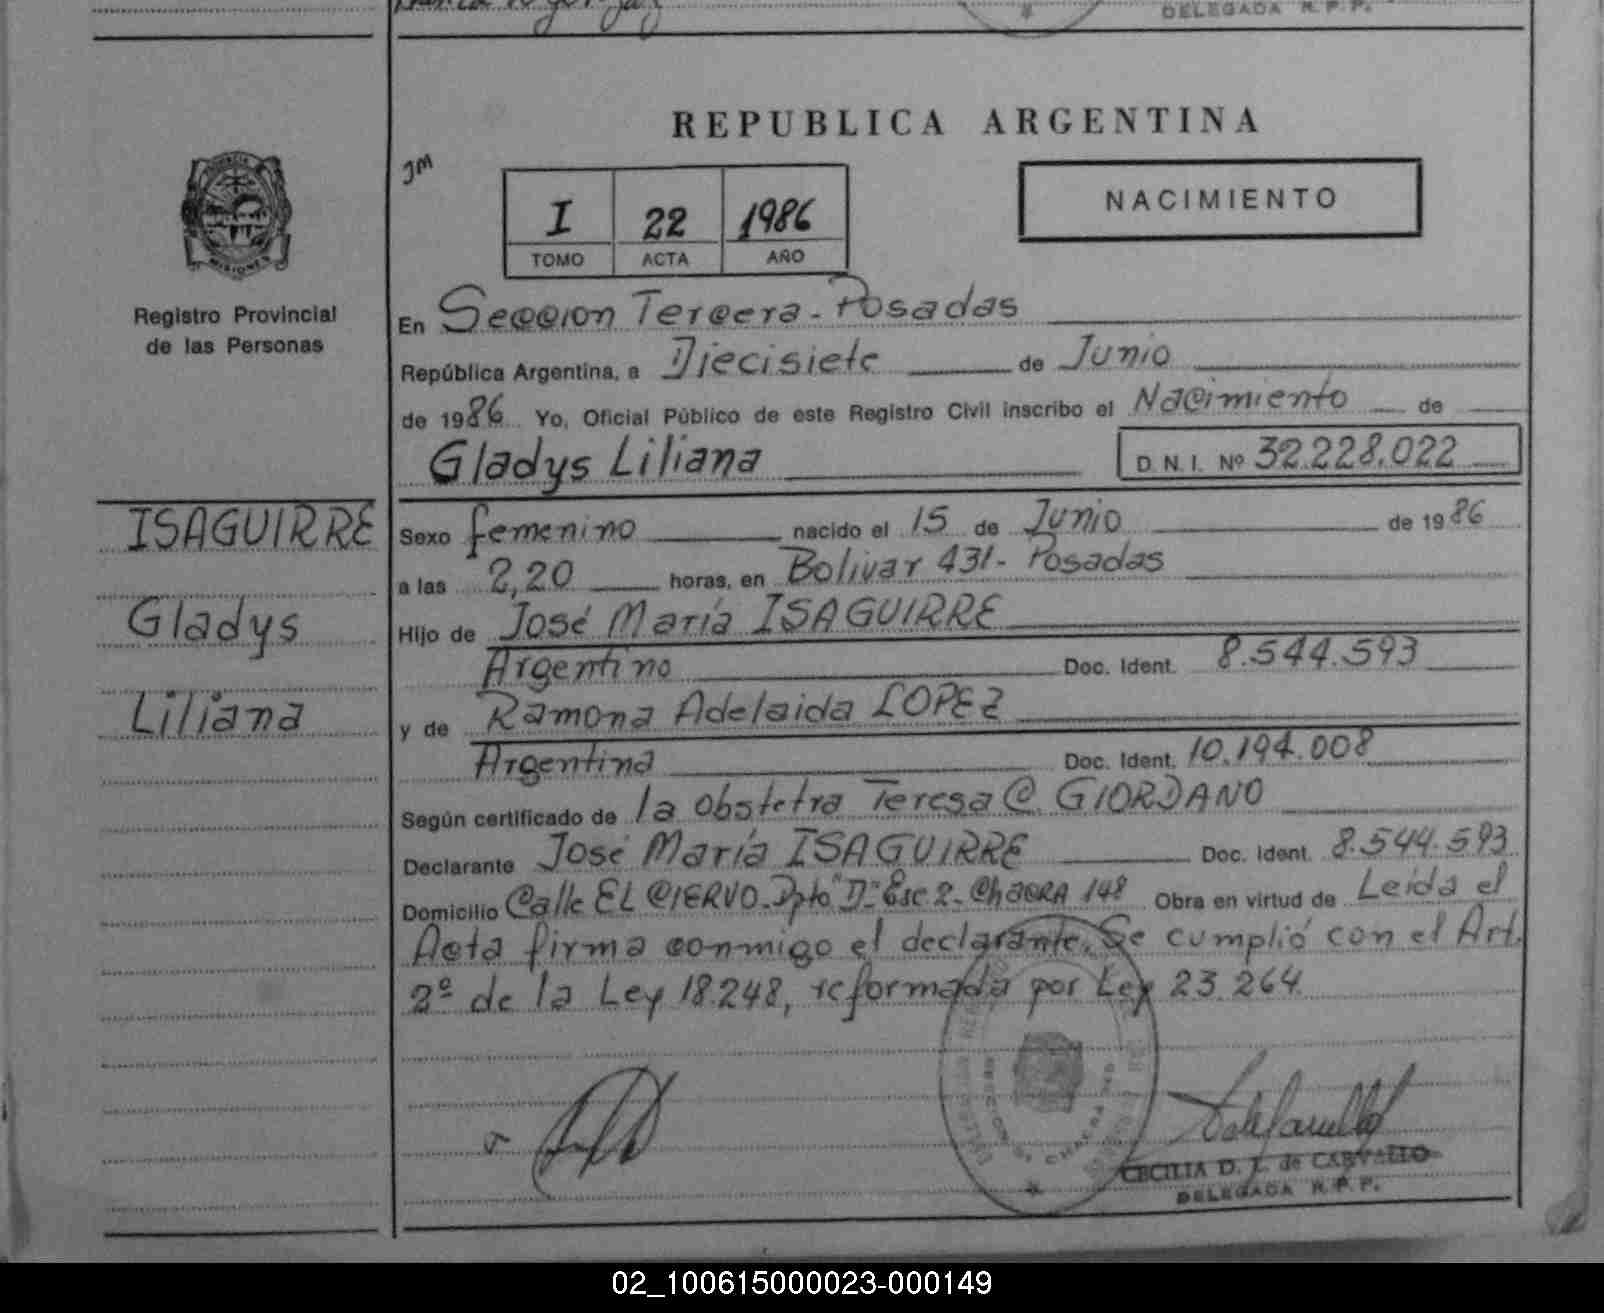 DELEGADA R.P.P.
REPUBLICA ARGENTINA
JM
I 22 1986
TOMO ACTA AÑO
NACIMIENTO
MISIONES
Registro Provincial
de las Personas
En Seccion Tercera - Posadas
República Argentina, a Diecisiete de Junio
de 1986 Yo, Oficial Público de este Registro Civil inscribo el Nacimiento de
Gladys Liliana D.N.I. Nº 32.228.022
ISAGUIRRE
Gladys
Liliana
Sexo femenino nacido el 15 de Junio de 1986
a las 2,20 horas, en Bolivar 431 - Posadas
Hijo de José María ISAGUIRRE
Argentino Doc. Ident. 8.544.593
y de Ramona Adelaida LOPEZ
Argentina Doc. Ident. 10.194.008
Según certificado de la obstetra Teresa C. GIORDANO
Declarante José María ISAGUIRRE Doc. Ident. 8.544.593
Domicilio Calle EL CIERVO - Dpto "D" - Esc 2 - ChacRA 148 Obra en virtud de Leida el
Acta firma conmigo el declarante. Se cumplió con el Art.
2º de la Ley 18.248, reformada por Ley 23.264.
CECILIA D. L. de CARVALLO
DELEGADA R.P.P.
02_100615000023-000149